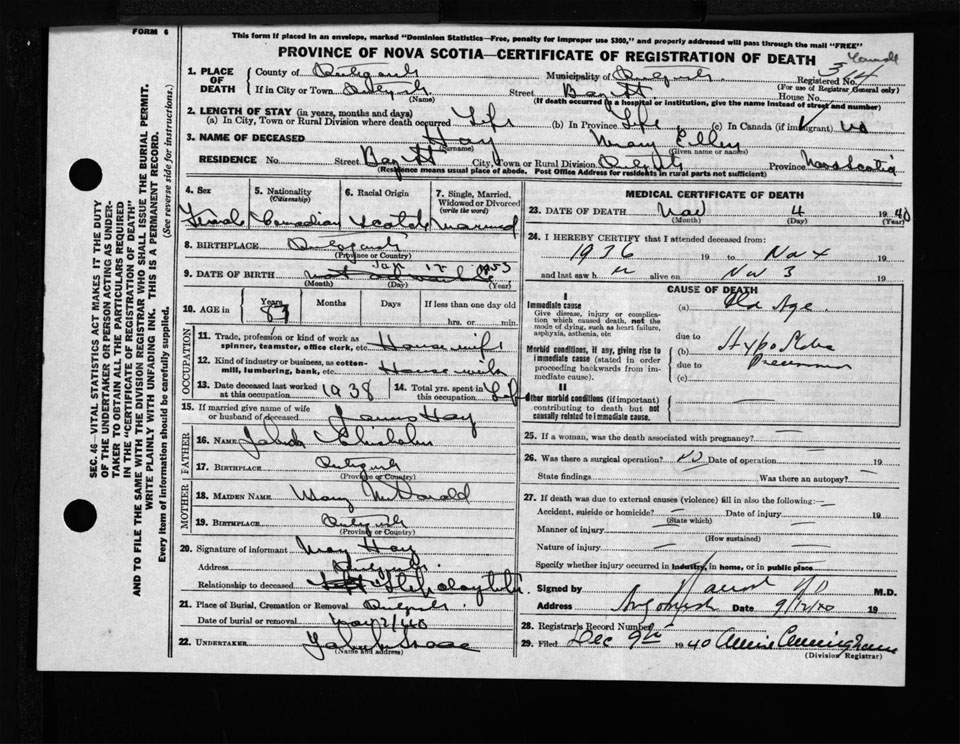 FORM 6
This form if placed in an envelope, marked "Dominion Statistics—Free, penalty for improper use $300," and properly addressed will pass through the mail "FREE"
PROVINCE OF NOVA SCOTIA—CERTIFICATE OF REGISTRATION OF DEATH
1. PLACE OF DEATH
County of Antigonish Municipality of Antigonish Registered No.
(For use of Registrar General only)
If in City or Town Antigonish Street Bay St House No.
(Name) (If death occurred in a hospital or institution, give the name instead of street and number)
2. LENGTH OF STAY (in years, months and days)
(a) In City, Town or Rural Division where death occurred Life (b) In Province Life (c) In Canada (if immigrant)
3. NAME OF DECEASED Hay Mary Ellen
(Surname) (Given name or names)
RESIDENCE No. Street Bay St City, Town or Rural Division Antigonish Province Nova Scotia
(Residence means usual place of abode. Post Office Address for residents in rural parts not sufficient)
4. Sex
Female
5. Nationality (Citizenship)
Canadian
6. Racial Origin
Scotch
7. Single, Married, Widowed or Divorced (write the word)
Married
8. BIRTHPLACE Antigonish
(Province or Country)
9. DATE OF BIRTH
(Month) (Day) (Year)
10. AGE in Years 87 Months Days If less than one day old hrs. or min.
OCCUPATION
11. Trade, profession or kind of work as spinner, teamster, office clerk, etc. Housewife
12. Kind of industry or business, as cotton-mill, lumbering, bank, etc.
13. Date deceased last worked at this occupation 1938
14. Total yrs. spent in this occupation Life
15. If married give name of wife or husband of deceased James Hay
FATHER
16. NAME Chisholm
17. BIRTHPLACE Antigonish
(Province or Country)
MOTHER
18. MAIDEN NAME Mary McDonald
19. BIRTHPLACE Antigonish
(Province or Country)
20. Signature of informant Mary Hay
Address Antigonish
Relationship to deceased Step daughter
21. Place of Burial, Cremation or Removal Antigonish
Date of burial or removal
22. UNDERTAKER
(Name and address)
MEDICAL CERTIFICATE OF DEATH
23. DATE OF DEATH Nov 4 1940
(Month) (Day) (Year)
24. I HEREBY CERTIFY that I attended deceased from:
1936 19 to Nov 4 19
and last saw h alive on Nov 3 19
CAUSE OF DEATH
I
Immediate cause
Give disease, injury or complication which caused death, not the mode of dying, such as heart failure, asphyxia, asthenia, etc
(a) Old Age
due to
Morbid conditions, if any, giving rise to immediate cause (stated in order proceeding backwards from immediate cause).
(b) Hypostatic
due to Pneumonia
(c)
II
Other morbid conditions (if important) contributing to death but not causally related to immediate cause.
25. If a woman, was the death associated with pregnancy?
26. Was there a surgical operation? No Date of operation 19
State findings Was there an autopsy?
27. If death was due to external causes (violence) fill in also the following:—
Accident, suicide or homicide? Date of injury 19
(State which)
Manner of injury
(How sustained)
Nature of injury
Specify whether injury occurred in industry, in home, or in public place
Signed by M.D.
Address Antigonish Date 9/12/40 19
28. Registrar's Record Number
29. Filed Dec 9th 1940 Annie Cunningham
(Division Registrar)
SEC. 46—VITAL STATISTICS ACT MAKES IT THE DUTY
OF THE UNDERTAKER OR PERSON ACTING AS UNDER-
TAKER TO OBTAIN ALL THE PARTICULARS REQUIRED
IN THE "CERTIFICATE OF REGISTRATION OF DEATH"
AND TO FILE THE SAME WITH THE DIVISION REGISTRAR WHO SHALL ISSUE THE BURIAL PERMIT.
WRITE PLAINLY WITH UNFADING INK. THIS IS A PERMANENT RECORD.
Every item of information should be carefully supplied. (See reverse side for instructions.)